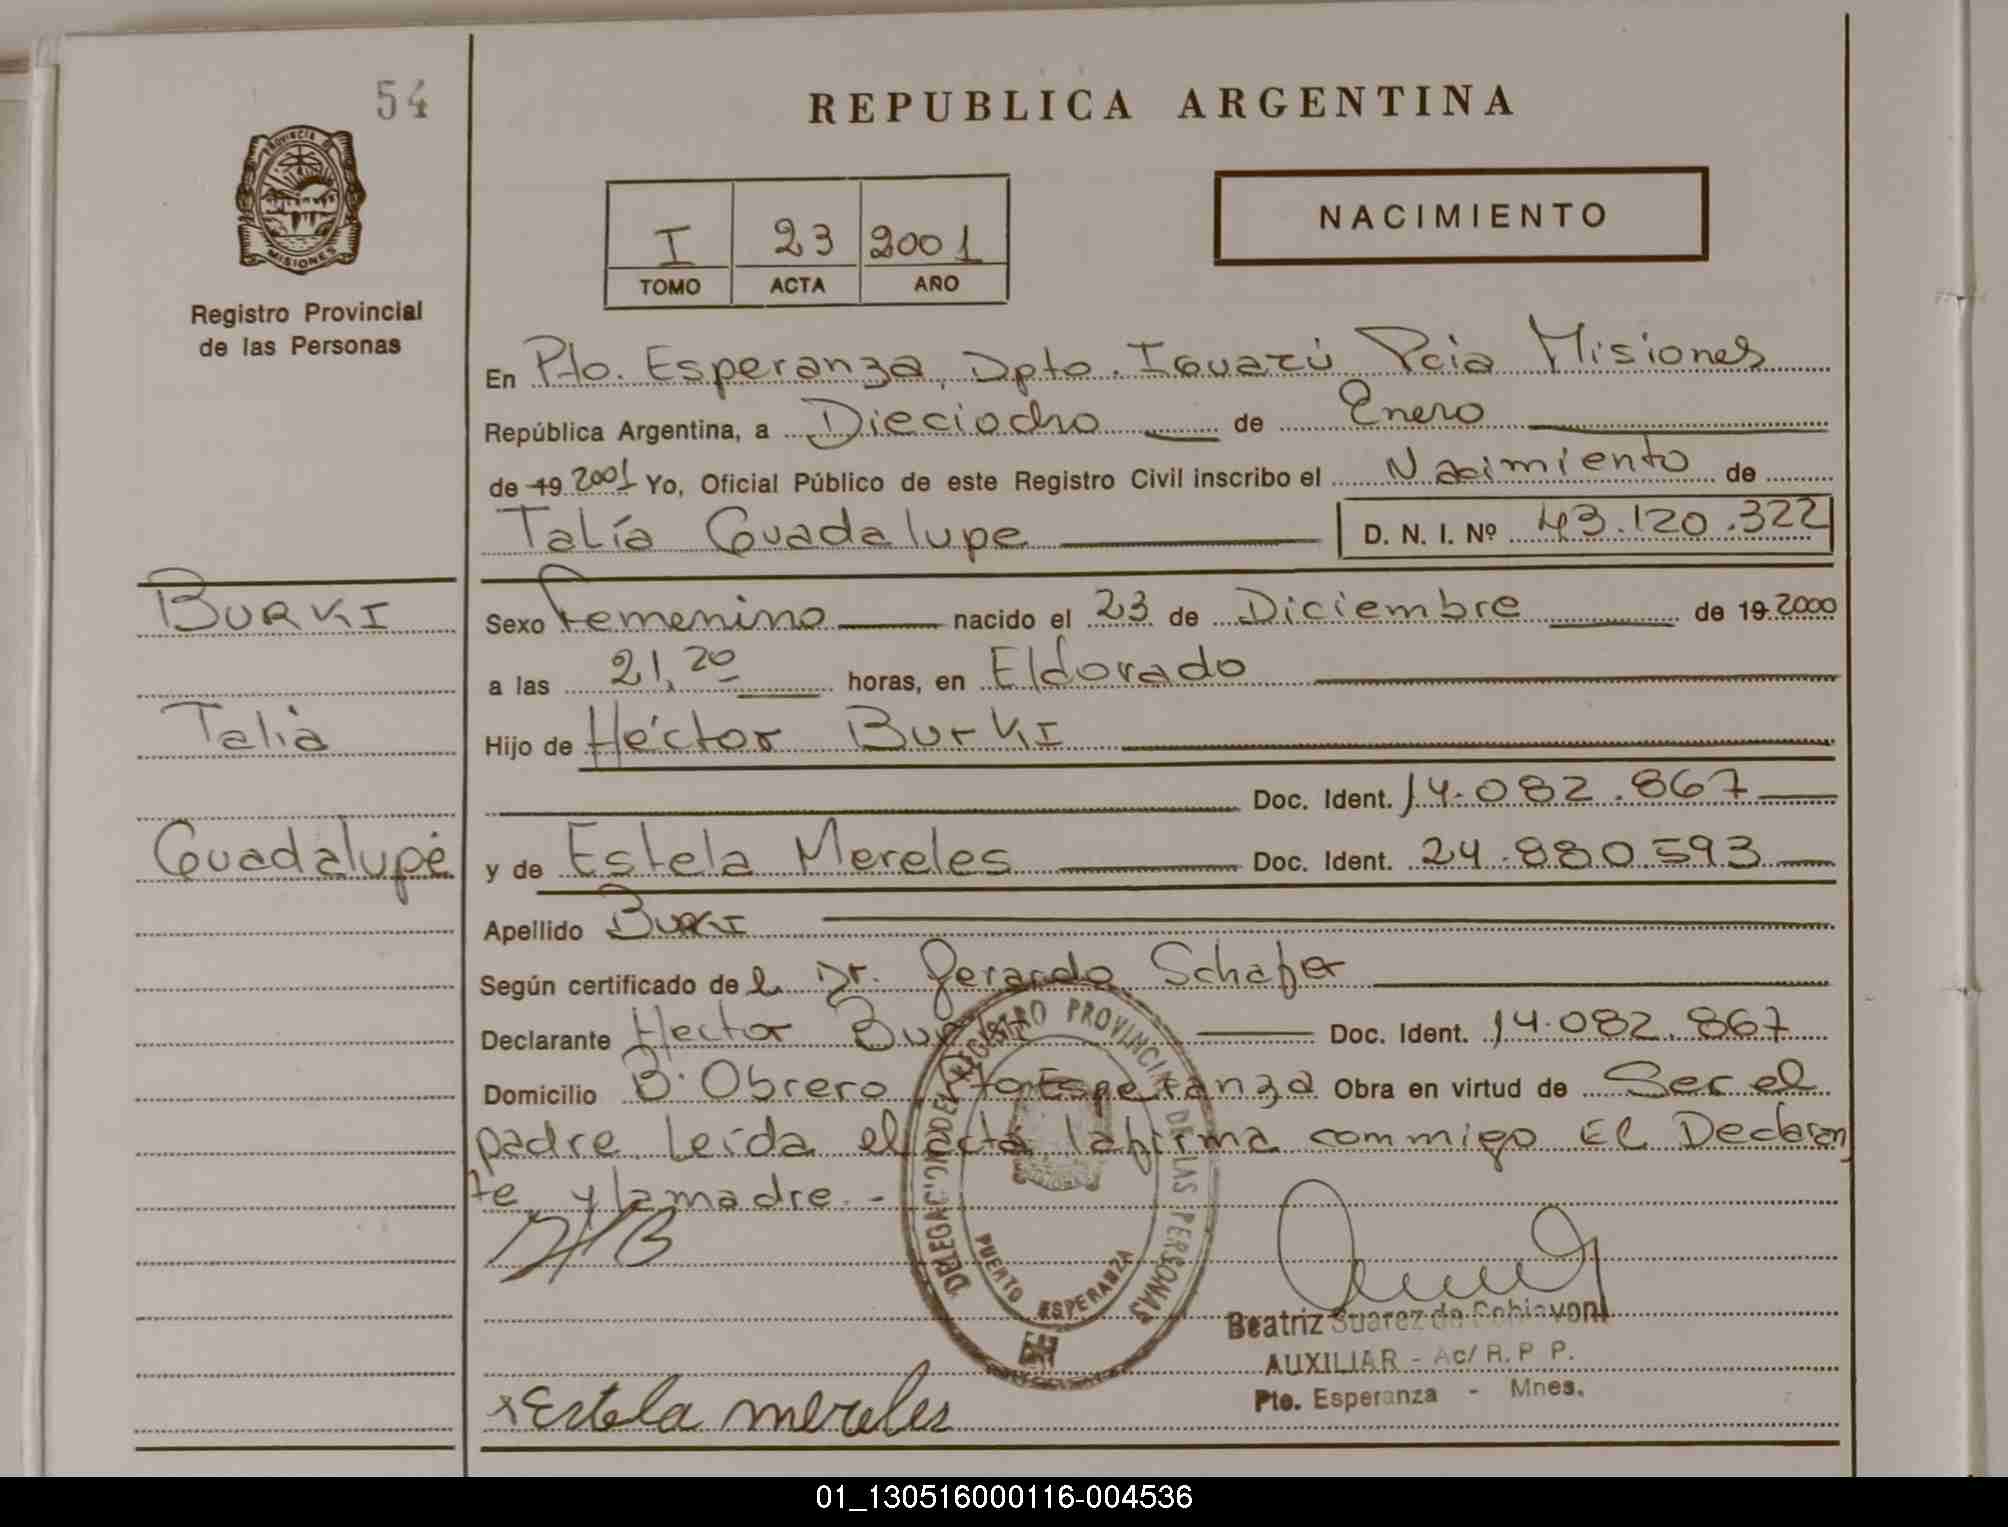 54
REPUBLICA ARGENTINA
PROVINCIA DE
MISIONES
Registro Provincial
de las Personas
I 23 2001
TOMO ACTA AÑO
NACIMIENTO
En Pto. Esperanza, Dpto. Iguazú Pcia Misiones
República Argentina, a Dieciocho de Enero
de 19 2001 Yo, Oficial Público de este Registro Civil inscribo el Nacimiento de
Talía Guadalupe D. N. I. Nº 43.120.322
BURKI
Talia
Guadalupe
Sexo Femenino nacido el 23 de Diciembre de 19 2000
a las 21,20 horas, en Eldorado
Hijo de Héctor Burki
Doc. Ident. 14.082.867
y de Estela Mereles Doc. Ident. 24.880.593
Apellido BURKI
Según certificado de l Dr. Gerardo Schafer
Declarante Hector Burki Doc. Ident. 14.082.867
Domicilio B. Obrero Pto Esperanza Obra en virtud de Ser el
padre. Leída el acta, la firma commigo El Declaran
te y la madre.-
DELEGACION DEL REGISTRO PROVINCIAL DE LAS PERSONAS
PUERTO ESPERANZA
Beatriz Suarez de
AUXILIAR - Ac/ R. P. P.
Pto. Esperanza - Mnes.
Estela mereles
01_130516000116-004536